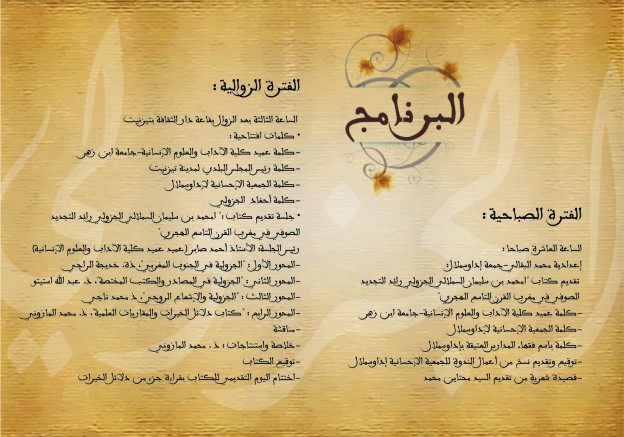 البرنامج
الفترة الصباحية :
الساعة العاشرة صباحا :
إعدادية محمد البقالي-جمعة إداوسملال
تقديم كتاب "امحمد بن سليمان السملالي الجزولي رائد التجديد
الصوفي في مغرب القرن التاسع الهجري"
-كلمة عميد كلية الآداب والعلوم الإنسانية-جامعة ابن زهر
-كلمة الجمعية الإحسانية لإداوسملال
-كلمة باسم فقهاء المدارس العتيقة بإداوسملال
-توقيع وتقديم نسخ من أعمال الندوة للجمعية الإحسانية إداوسملال
-قصيدة شعرية من تقديم السيد محتاين محمد
الفترة الزوالية :
الساعة الثالثة بعد الزوال بقاعة دار الثقافة بتيزنيت
• كلمات افتتاحية :
-كلمة عميد كلية الآداب والعلوم الإنسانية-جامعة ابن زهر
-كلمة رئيس المجلس البلدي لمدينة تيزنيت
-كلمة الجمعية الإحسانية لإداوسملال
-كلمة أحفاد الجزولي
• جلسة تقديم كتاب : " امحمد بن سليمان السملالي الجزولي رائد التجديد
الصوفي في مغرب القرن التاسع الهجري"
رئيس الجلسة: الأستاذ أحمد صابر (عميد عميد كلية الآداب والعلوم الإنسانية)
-المحور الأول: "الجزولية في الجنوب المغربي"، ذة. خديجة الراجي
-المحور الثاني: "الجزولية في المصادر والكتب المختصة"، ذ. عبد الله استيتو
-المحور الثالث : "الجزولية والإشعاع الروحي"، ذ. محمد ناجي
-المحور الرابع : "كتاب دلائل الخيرات والمقاربات العلمية"، ذ. محمد المازوني
-مناقشة
-خلاصة واستنتاجات : ذ. محمد المازوني
-توقيع الكتاب
-اختتام اليوم التقديمي للكتاب بقراءة جزء من دلائل الخيرات